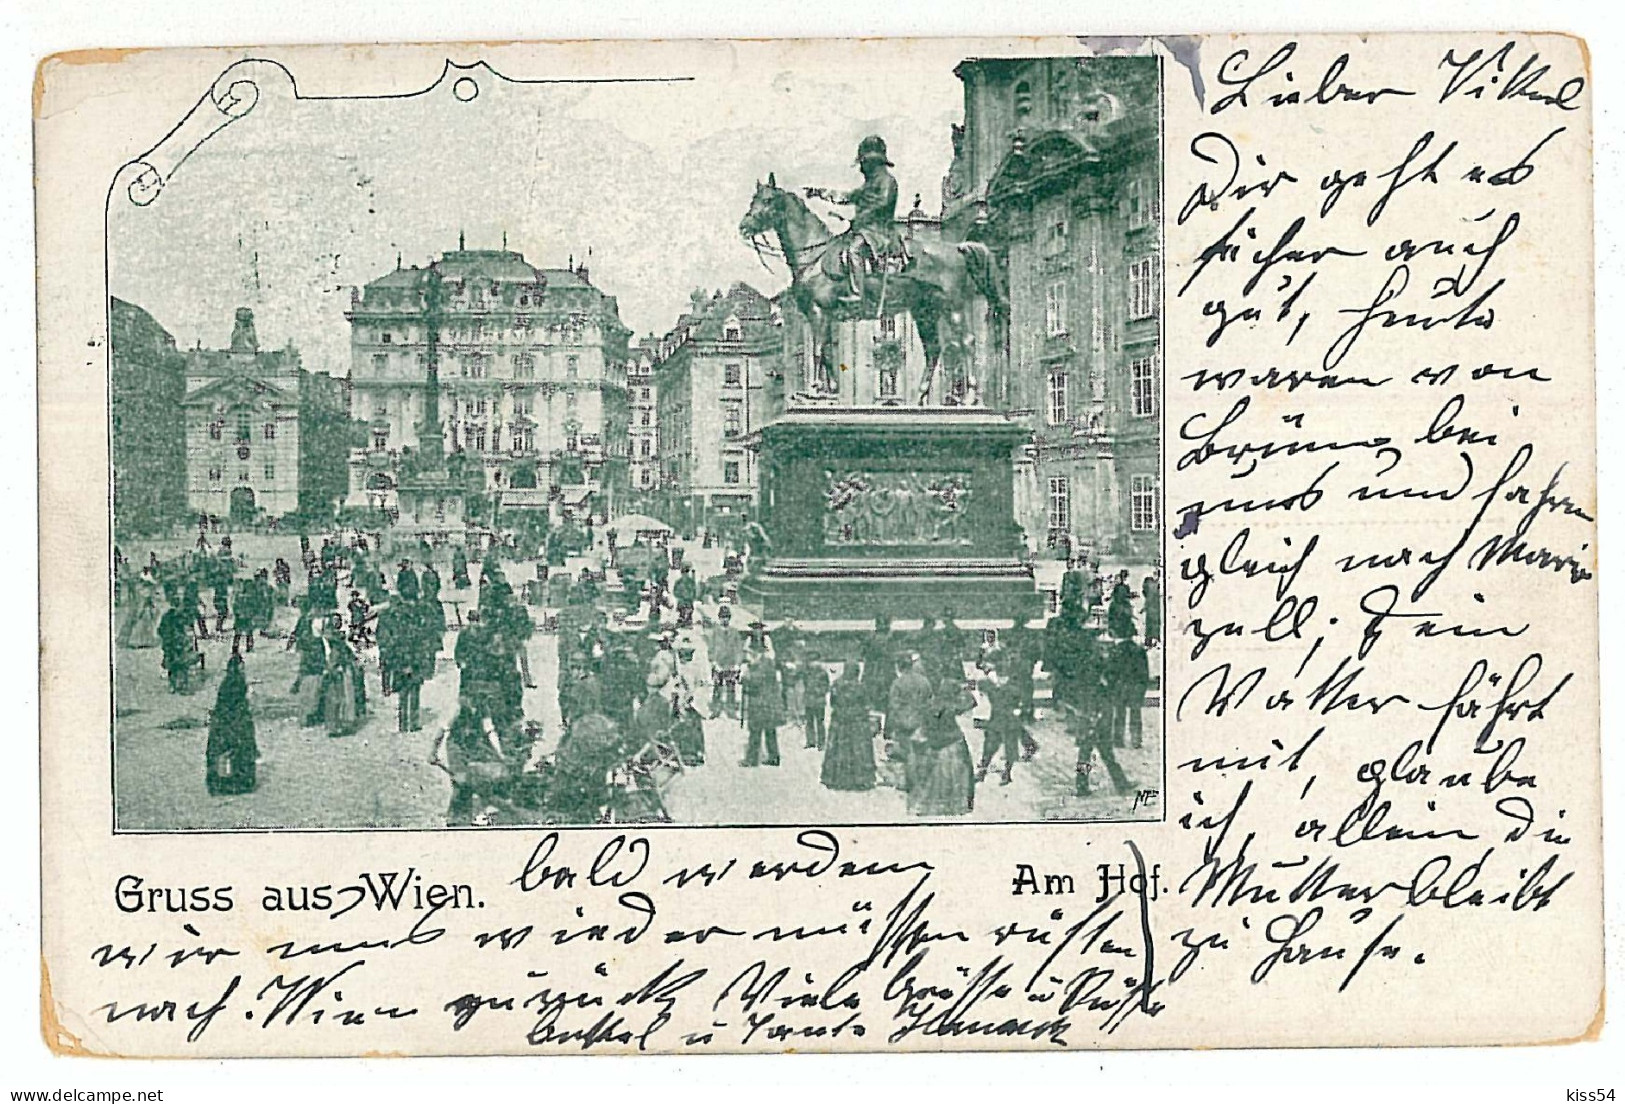 Lieber Viktor
Dir geht es
sicher auch
gut, heute
waren von
Brünn bei
uns und fahren
gleich nach Maria
zell; Dein
Vatter fährt
mit, glaube
ich, allein, die
Mutter bleibt
zu Hause.
Gruss aus Wien.
Am Hof.
bald werden
wir uns wieder müssen rüsten
nach Wien zurück Viele Grüsse u Küsse
Onkel u Tante
kiss54